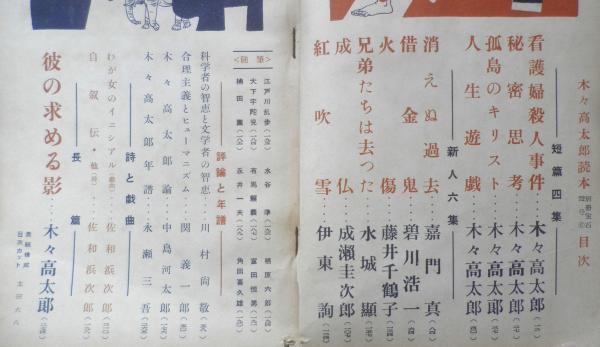 木々高太郎読本 別冊宝石 目次
短篇四集
看護婦殺人事件‥木々高太郎
秘密思考‥木々高太郎
孤島のキリスト‥木々高太郎
人生遊戯‥木々高太郎
新人六集
消えぬ過去‥嘉門真
借金鬼‥碧川浩一
火傷‥藤井千鶴子
兄弟たちは去った‥水城顕
成仏‥成瀬圭次郎
紅吹雪‥伊東詢
<随筆>
江戸川乱歩 水谷準 椿原六郎
大下宇陀児 有馬頼義 富田恒男
楠田薫 永井一夫 角田喜久雄
評論と年譜
科学者の智恵と文学者の智恵‥川村尚敬
合理主義とヒューマニズム‥関義一郎
木々高太郎論‥中島河太郎
木々高太郎年譜‥永瀬三吾
詩と戯曲
わが女のイニシアル(戯曲)‥佐和浜次郎
自叙伝・他(詩)‥佐和浜次郎
長篇
彼の求める影‥木々高太郎
表紙構成
目次カット